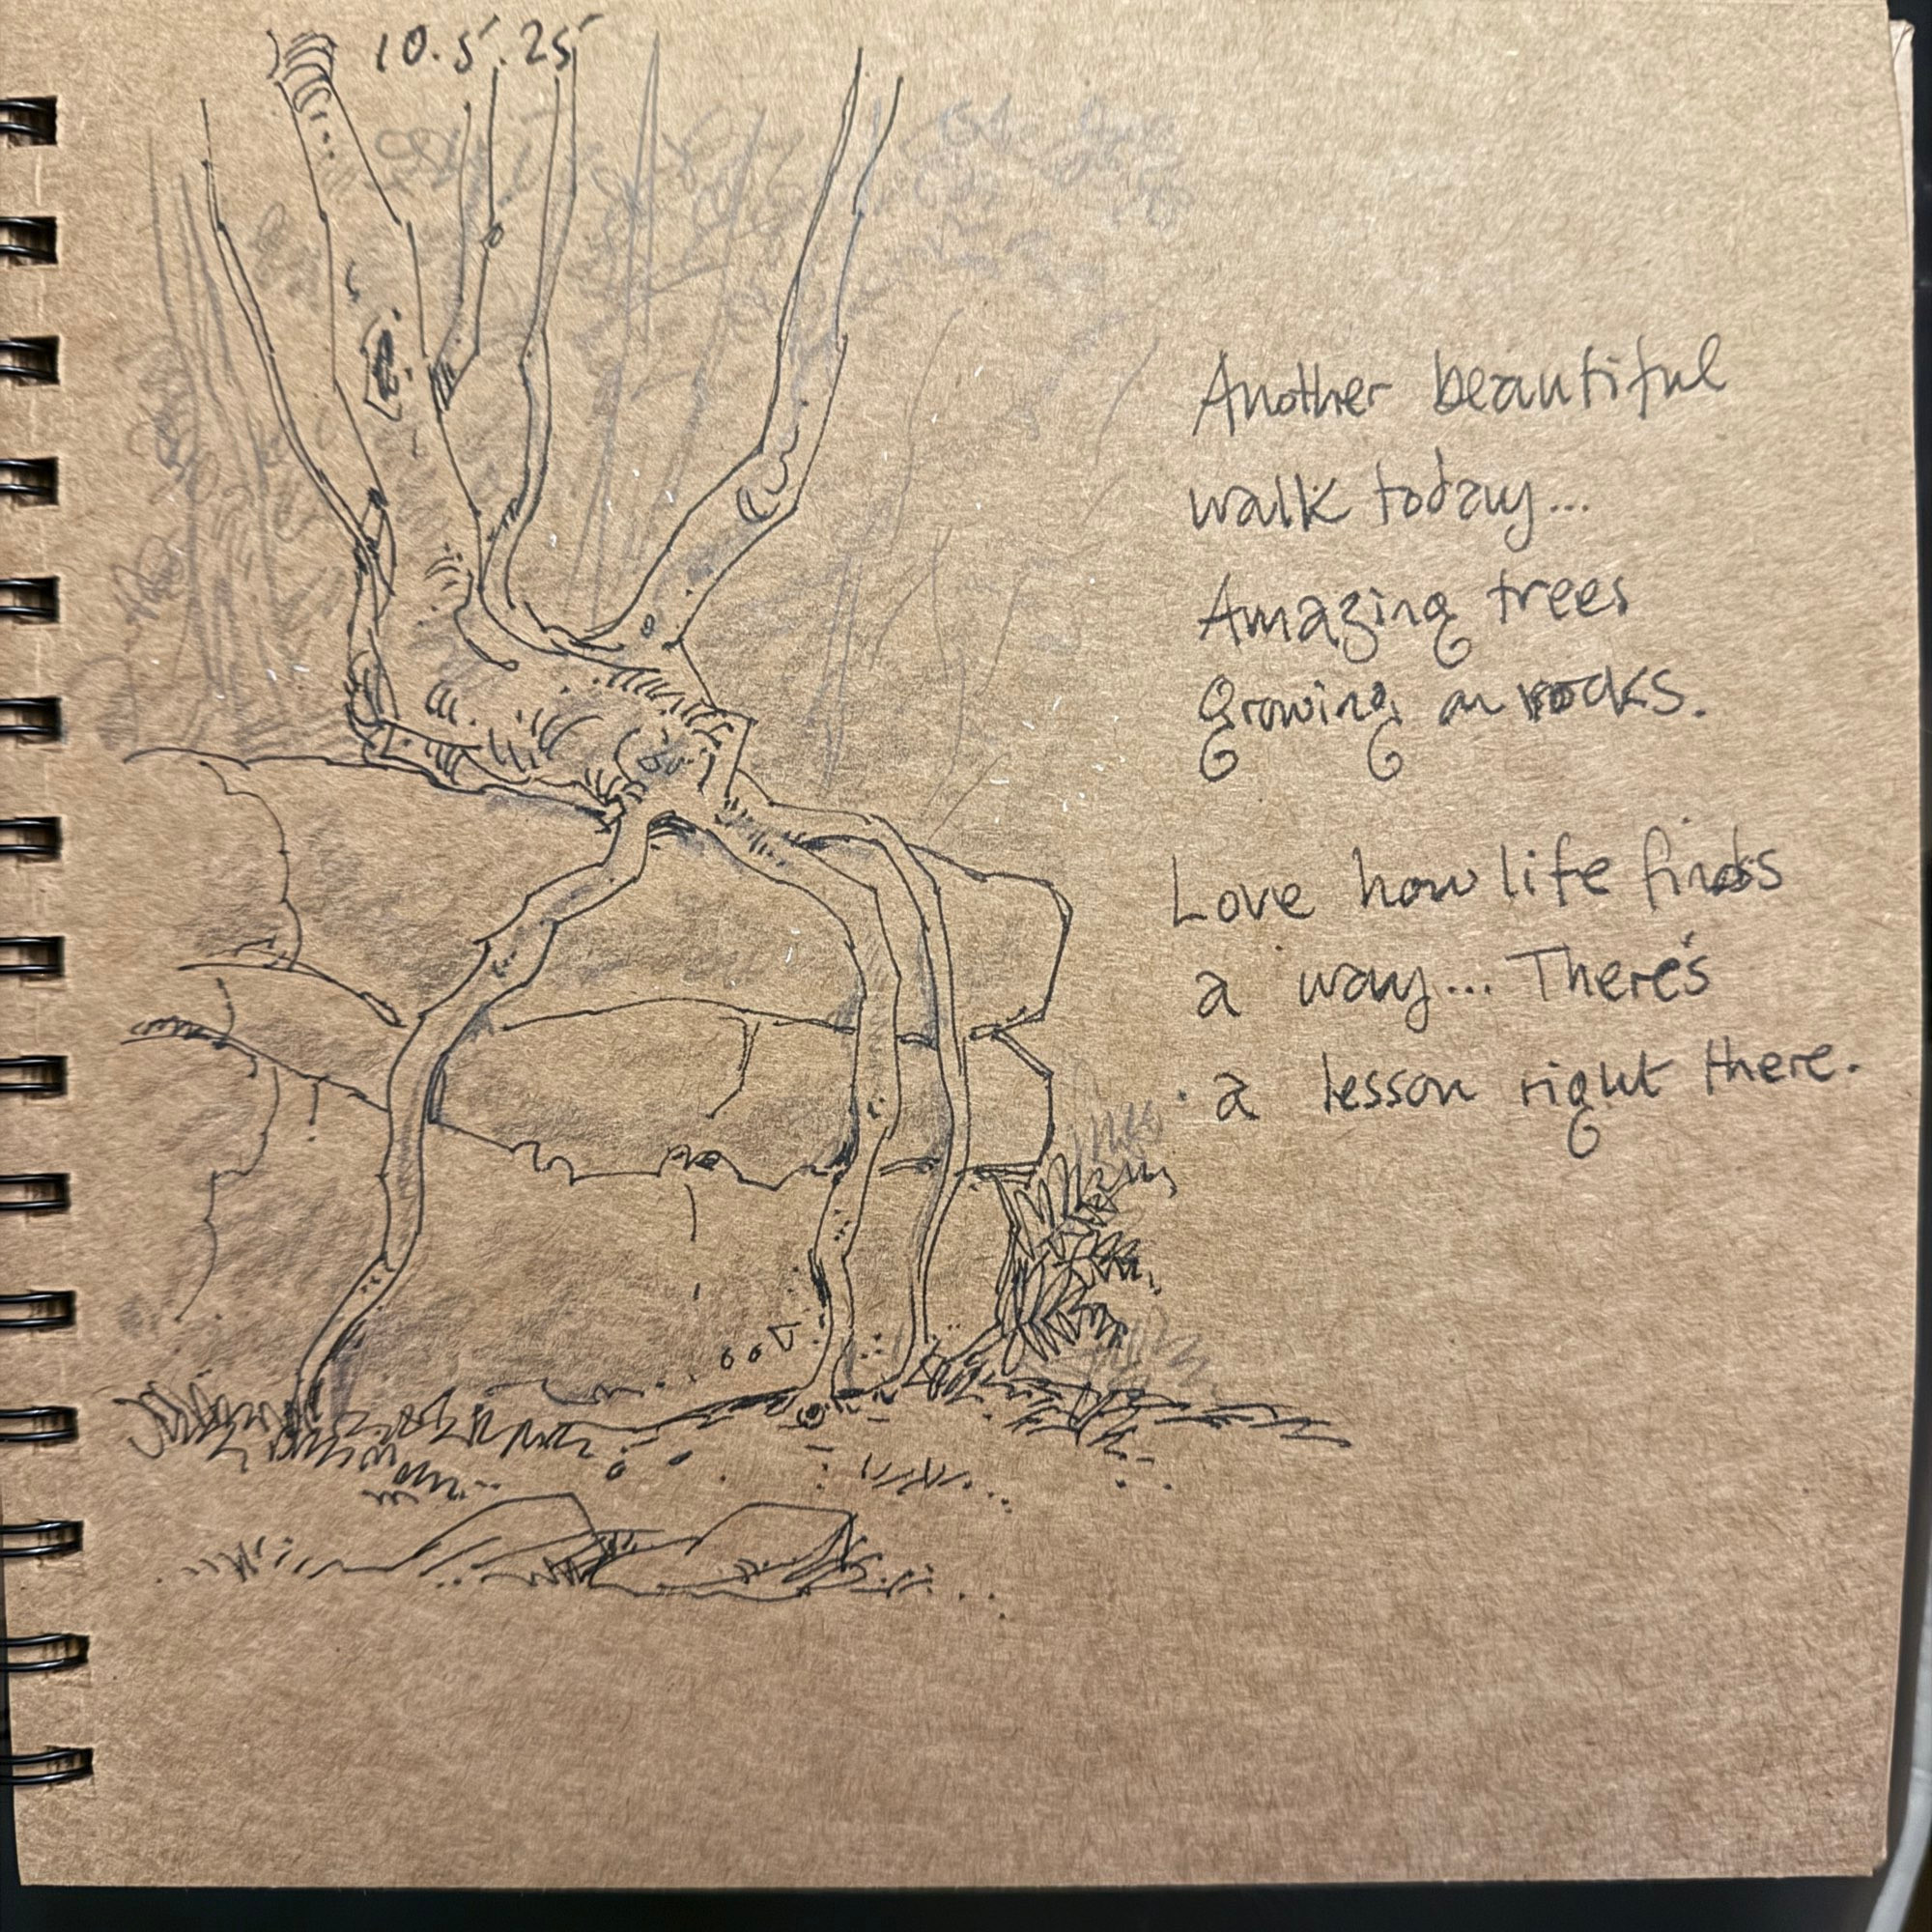 10.5.25
Another beautiful
walk today...
Amazing trees
growing on rocks.
Love how life finds
a way... There's
a lesson right there.